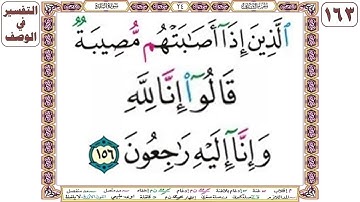 التفسير
في
الوصف
١٦٣
٢٤
ٱلَّذِينَ إِذَآ أَصَـٰبَتْهُم مُّصِيبَةٌ
قَالُوٓا۟ إِنَّا لِلَّهِ
وَإِنَّآ إِلَيْهِ رَٰجِعُونَ ١٥٦